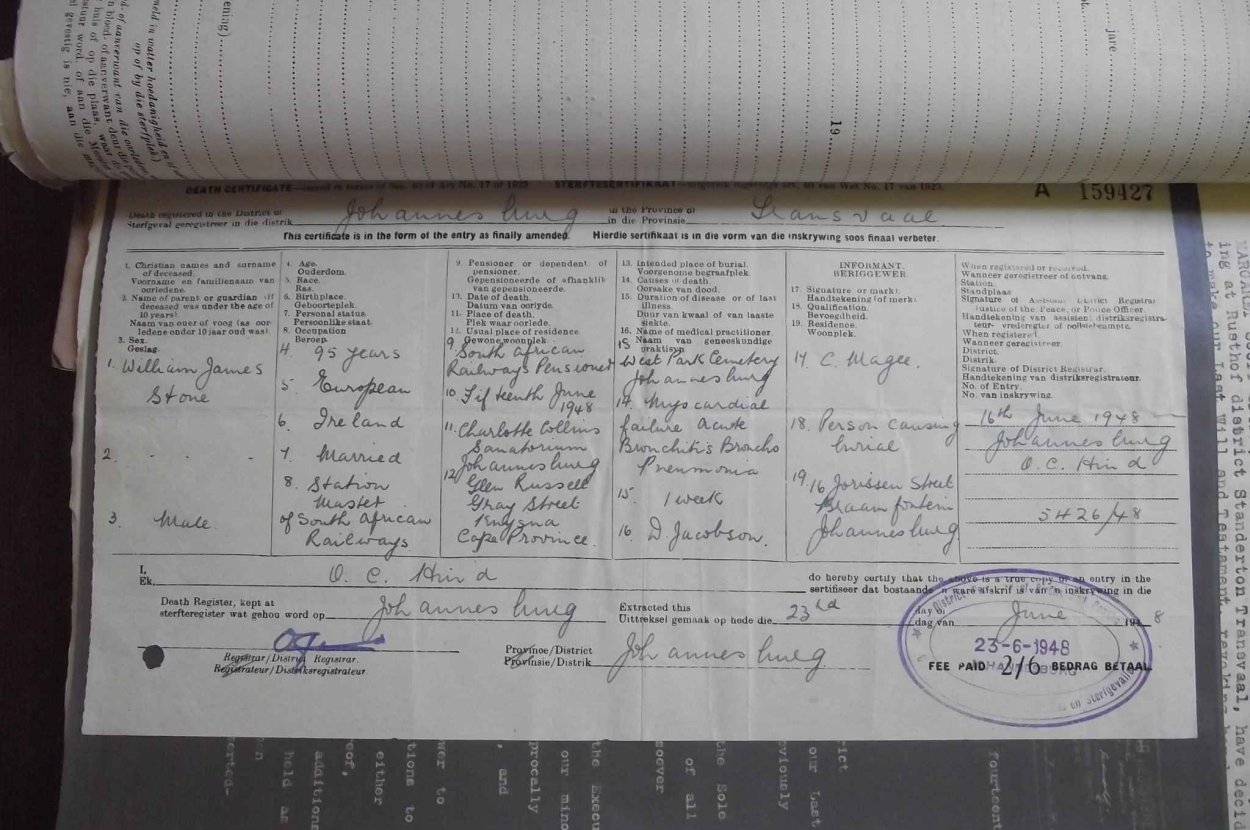 jare
19
DEATH CERTIFICATE
STERFTESERTIFIKAAT
A 159427
Death registered in the District of
Sterfgeval geregistreer in die distrik
Johannesburg
in the Province of
in die Provinsie
Transvaal
This certificate is in the form of the entry as finally amended. Hierdie sertifikaat is in die vorm van die inskrywing soos finaal verbeter.
1. Christian names and surname
of deceased.
Voorname en familienaam van
oorledene.
2. Name of parent or guardian (if
deceased was under the age of
10 years)
Naam van ouer of voog (as oor-
ledene onder 10 jaar oud was).
3. Sex.
Geslag.
1. William James
Stone
2.
3. Male
4. Age.
Ouderdom.
5. Race.
Ras.
6. Birthplace.
Geboorteplek.
7. Personal status.
Persoonlike staat.
8. Occupation
Beroep.
4. 95 years
5. European
6. Ireland
7. Married
8. Station
Master
of South African
Railways
9. Pensioner or dependent of
pensioner.
Gepensioneerde of afhanklik
van gepensioneerde.
10. Date of death.
Datum van oorlyde.
11. Place of death.
Plek waar oorlede.
12. Usual place of residence
Gewone woonplek.
9. South African
Railways Pensioner
10. Fifteenth June
1948
11. Charlotte Collins
Sanatorium
Johannesburg
12. Glen Russell
Gray Street
Knysna
Cape Province.
13. Intended place of burial.
Voorgenome begraafplek.
14. Causes of death.
Oorsake van dood.
15. Duration of disease or of last
illness.
Duur van kwaal of van laaste
siekte.
16. Name of medical practitioner.
Naam van geneeskundige
praktisyn.
West Park Cemetery
Johannesburg
14. Myocardial
failure Acute
Bronchitis Broncho
Pneumonia
15. 1 week
16. D. Jacobson.
INFORMANT.
BERIGGEWER.
17. Signature or mark.
Handtekening of merk.
18. Qualification.
Bevoegdheid.
19. Residence.
Woonplek.
17 C. Magee.
18. Person causing
burial
19. 16 Jorissen Street
Braamfontein
Johannesburg
When registered or received.
Wanneer geregistreer of ontvang.
Station.
Standplaas
Signature of Assistant District Registrar
Justice of the Peace, or Police Officer.
Handtekening van assistent distriksregistra-
teur- vrederegter of polisiebeampte.
When registered
Wanneer geregistreer
District.
Distrik.
Signature of District Registrar.
Handtekening van distriksregistrateur.
No. of Entry.
No. van inskrywing.
16th June 1948
Johannesburg
O. C. Hind
5426/48
I,
Ek,
O. C. Hind
do hereby certify that the above is a true copy of an entry in the
sertifiseer dat bostaande 'n ware afskrif is van 'n inskrywing in die
Death Register, kept at
sterfteregister wat gehou word op
Johannesburg
Extracted this
Uittreksel gemaak op hede die
23rd
day of
dag van
June
1948
Registrar/District Registrar.
Registrateur/Distriksregistrateur
Province/District
Provinsie/Distrik
Johannesburg
23-6-1948
FEE PAID 2/6 BEDRAG BETAAL
JOHANNESBURG
en Sterfgevalle
ing at Rusthof district Standerton Transvaal, have decid
to make our Last Will and Testament, revoking
fourteent
our Last
viously
the Sole
of all
soever
the Execu
our mino
pocally
, and
wer to
tions to
either
eof,
addition
held as